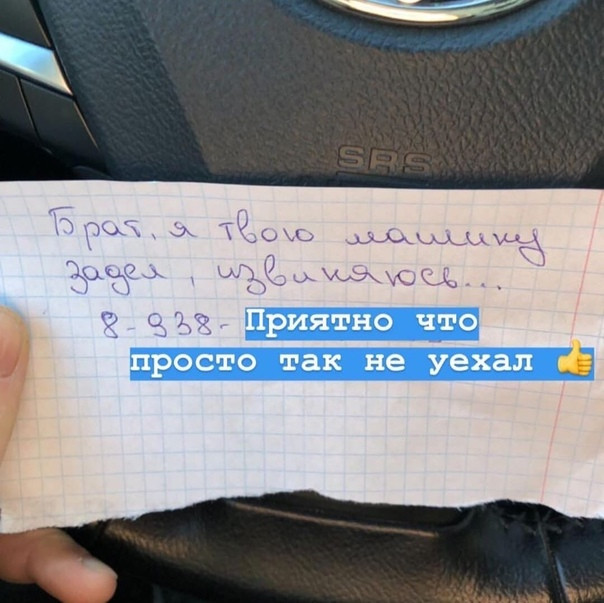 SRS
Брат, я твою машину
задел, извиняюсь...
8-938- Приятно что
просто так не уехал 👍